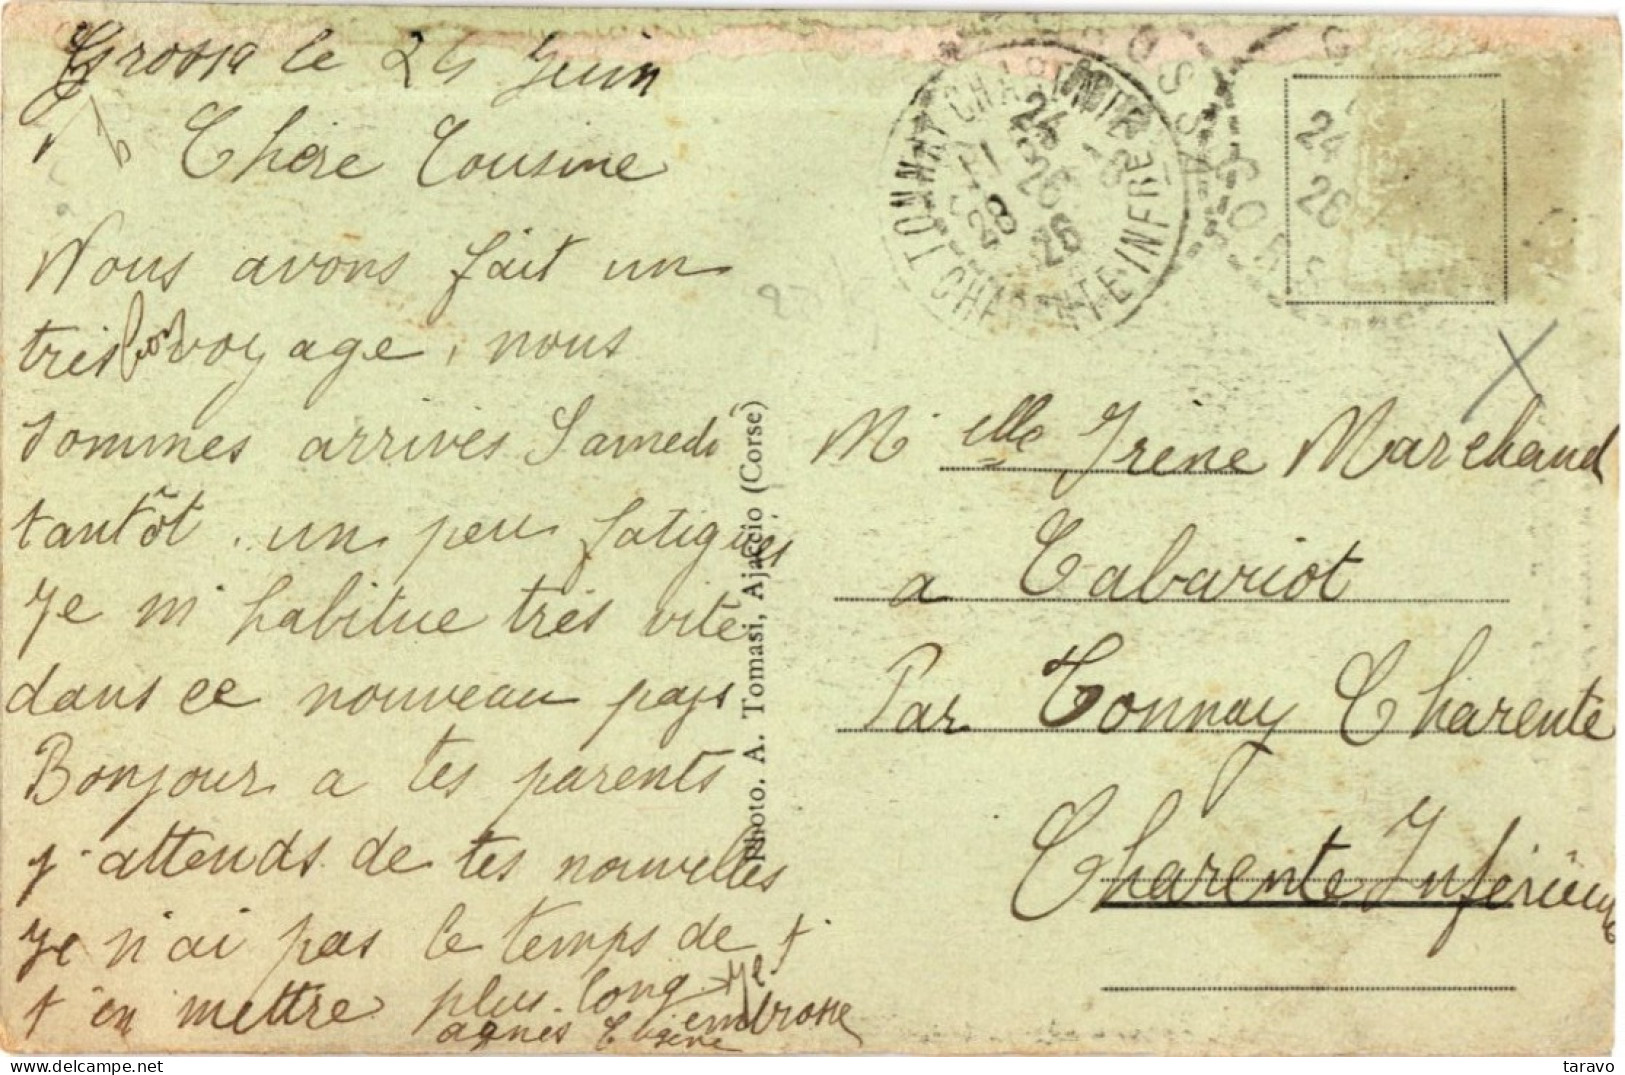 Grossa le 24 Juin
Chère Cousine
Nous avons fait un
très bon voyage, nous
sommes arrivés Samedi
tantôt . un peu fatigués
Je m'habitue très vite
dans ce nouveau pays
Bonjour a tes parents
j'attends de tes nouvelles
Je n'ai pas le temps de t
t'en mettre plus long Je
embrasse
agnès
Photo. A. Tomasi, Ajaccio (Corse)
TONNAY CHARENTE
CHARENTE INFRE
28
26
CORSE
24
26
Melle Irène Marchand
a Cabariot
Par Tonnay Charente
Charente Inférieure
taravo